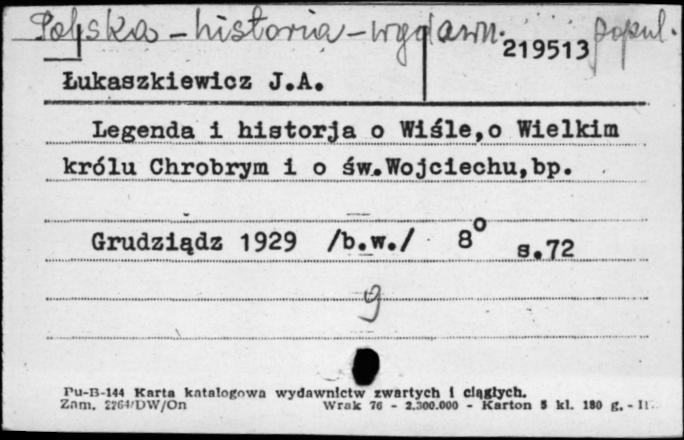 Polska - historia - wydawn. popul.
219513
Łukaszkiewicz J.A.
Legenda i historja o Wiśle,o Wielkim
królu Chrobrym i o św.Wojciechu,bp.
Grudziądz 1929 /b.w./ 8° s.72
g
Pu-B-144 Karta katalogowa wydawnictw zwartych i ciągłych.
Zam. 2264/DW/On Wrak 76 - 2.300.000 - Karton 5 kl. 180 g.